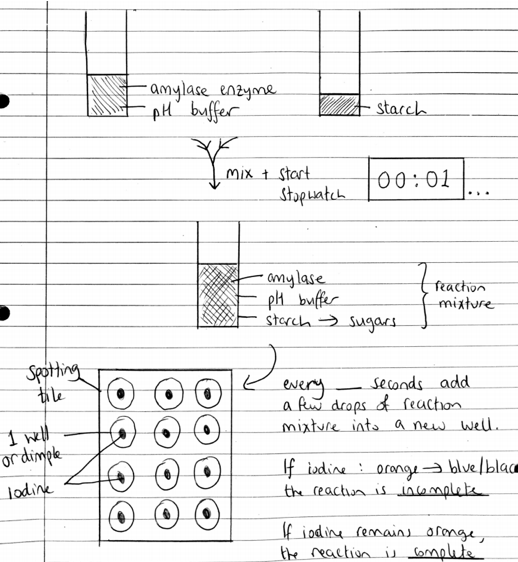 amylase enzyme
pH buffer
starch
mix + start
stopwatch
00:01 ...
amylase
pH buffer
starch → sugars
reaction
mixture
spotting
tile
1 well
or dimple
iodine
every __ seconds add
a few drops of reaction
mixture into a new well.
If iodine : orange → blue/blac
the reaction is incomplete
If iodine remains orange,
the reaction is complete